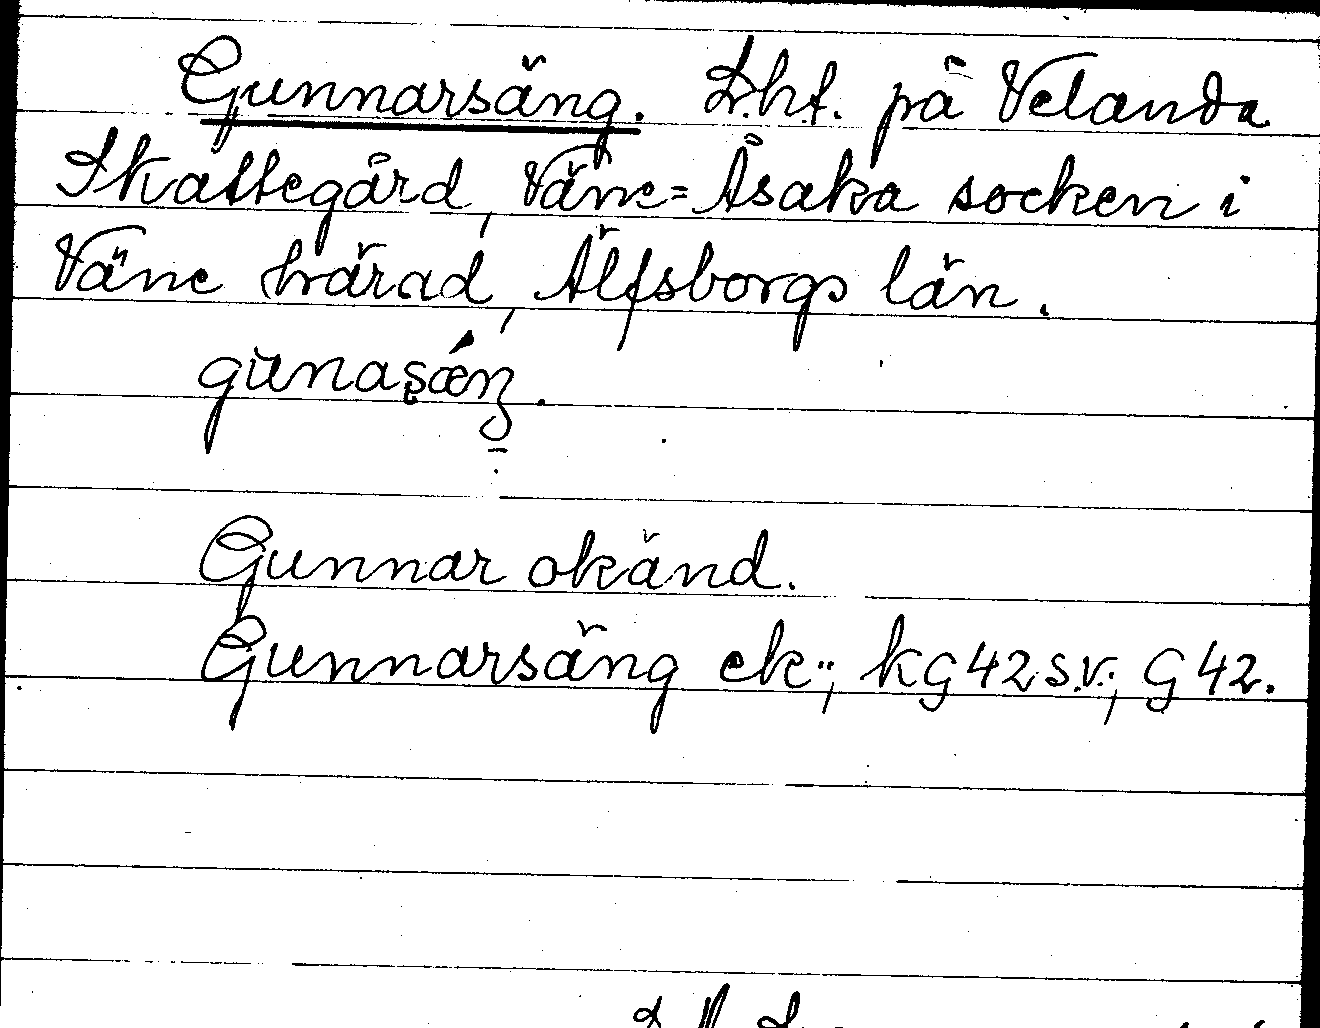 Gunnarsäng. L.ht. på Velanda
Skattegård, Väne-Åsaka socken i
Väne härad, Älfsborgs län.
Gunnar okänd.
Gunnarsäng ek.; kG42 s.v.; G42.